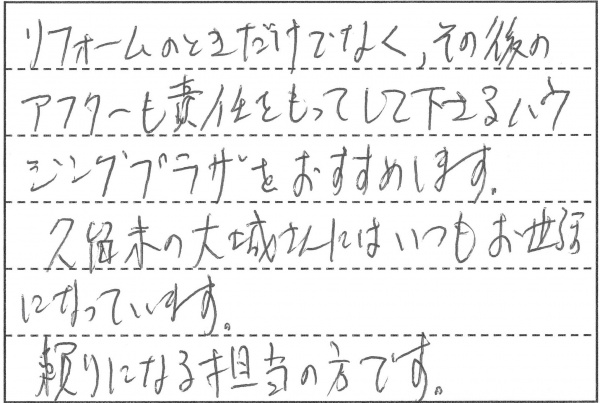 リフォームのときだけでなく,その後の
アフターも責任をもってして下さるハウ
ジングプラザをおすすめします。
久留米の大城さんにはいつもお世話
になっています。
頼りになる担当の方です。